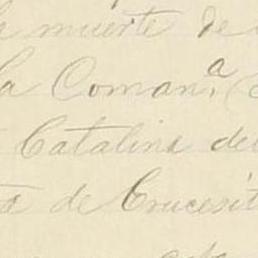 la muerte de
la Coman.ª (
Catalina del
ta de Crucesit